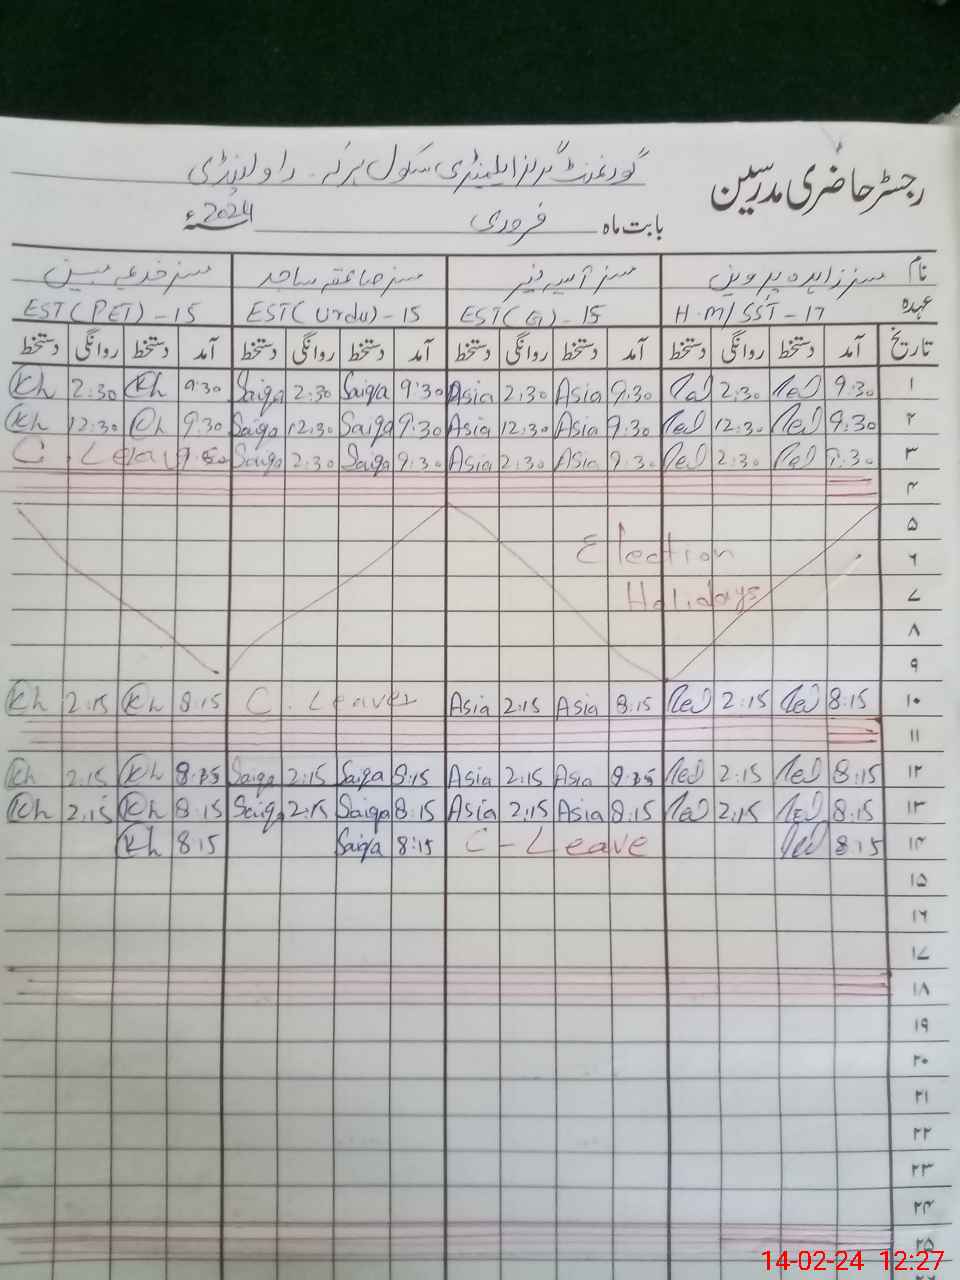 رجسٹر حاضری مدرسین
گورنمنٹ گرلز ایلیمنٹری سکول ہرکہ ۔ راولپنڈی
بابت ماہ فروری 2024ء
نام مسز زاہدہ پروین مسز آسیہ مسز صاعقہ ساجد مسز خدیجہ مبین
عہدہ H.M/SST-17 EST(G)-15 EST(Urdu)-15 EST(PET)-15
تاریخ آمد دستخط روانگی دستخط آمد دستخط روانگی دستخط آمد دستخط روانگی دستخط آمد دستخط روانگی دستخط
۱ 9:30 2:30 9:30 Asia 2:30 Asia 9:30 Saiqa 2:30 Saiqa 9:30 Kh 2:30 Kh
۲ 9:30 12:30 9:30 Asia 12:30 Asia 9:30 Saiqa 12:30 Saiqa 9:30 Kh 12:30 Kh
۳ 9:30 2:30 9:30 Asia 2:30 Asia 9:30 Saiqa 2:30 Saiqa C. Leave
۴
۵
۶ Election
۷ Holidays
۸
۹
۱۰ 8:15 2:15 8:15 Asia 2:15 Asia C. Leave 8:15 Kh 2:15 Kh
۱۱
۱۲ 8:15 2:15 8:15 Asia 2:15 Asia 8:15 Saiqa 2:15 Saiqa 8:15 Kh 2:15 Kh
۱۳ 8:15 2:15 8:15 Asia 2:15 Asia 8:15 Saiqa 2:15 Saiqa 8:15 Kh 2:15 Kh
۱۴ 8:15 C-Leave 8:15 Saiqa 8:15 Kh
۱۵
۱۶
۱۷
۱۸
۱۹
۲۰
۲۱
۲۲
۲۳
۲۴
۲۵
14-02-24 12:27